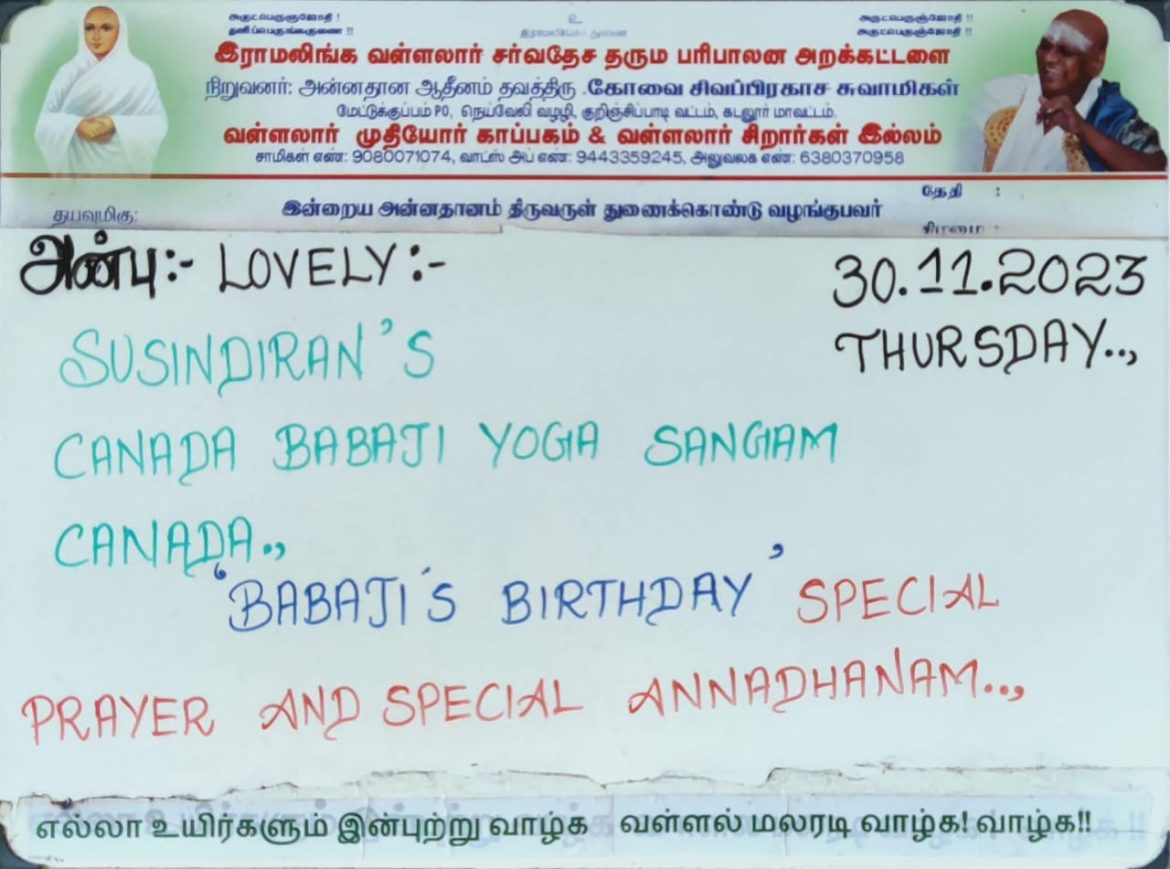 அருட்பெருஞ்ஜோதி !
தனிப்பெருங்கருணை !!
உ
அருட்பெருஞ்ஜோதி !!
அருட்பெருஞ்ஜோதி !!
இராமலிங்க வள்ளலார் சர்வதேச தரும பரிபாலன அறக்கட்டளை
நிறுவனர்: அன்னதான ஆதீனம் தவத்திரு .கோவை சிவப்பிரகாச சுவாமிகள்
மேட்டுக்குப்பம் PO, நெய்வேலி வழழி, குறிஞ்சிப்பாடி வட்டம், கடலூர் மாவட்டம்.
வள்ளலார் முதியோர் காப்பகம் & வள்ளலார் சிறார்கள் இல்லம்
சாமிகள் எண்: 9080071074, வாட்ஸ் அப் எண்: 9443359245, அலுவலக எண்: 6380370958
தேதி :
தயவுமிகு: இன்றைய அன்னதானம் திருவருள் துணைக்கொண்டு வழங்குபவர்
கிழமை :
அன்பு:- LOVELY:- 30.11.2023
SUSINDIRAN'S THURSDAY..,
CANADA BABAJI YOGA SANGAM
CANADA.,
'BABAJI'S BIRTHDAY' SPECIAL
PRAYER AND SPECIAL ANNADHANAM..,
எல்லா உயிர்களும் இன்புற்று வாழ்க வள்ளல் மலரடி வாழ்க! வாழ்க!!